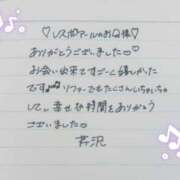 ♡レスポアールのお客様♡
ありがとうございました♡
お会い出来てすごーく嬉しかった
です♪♪ソファーでもたこさんいちゃいちゃ
して♡幸せな時間をありがとう
ございました♡
芹沢